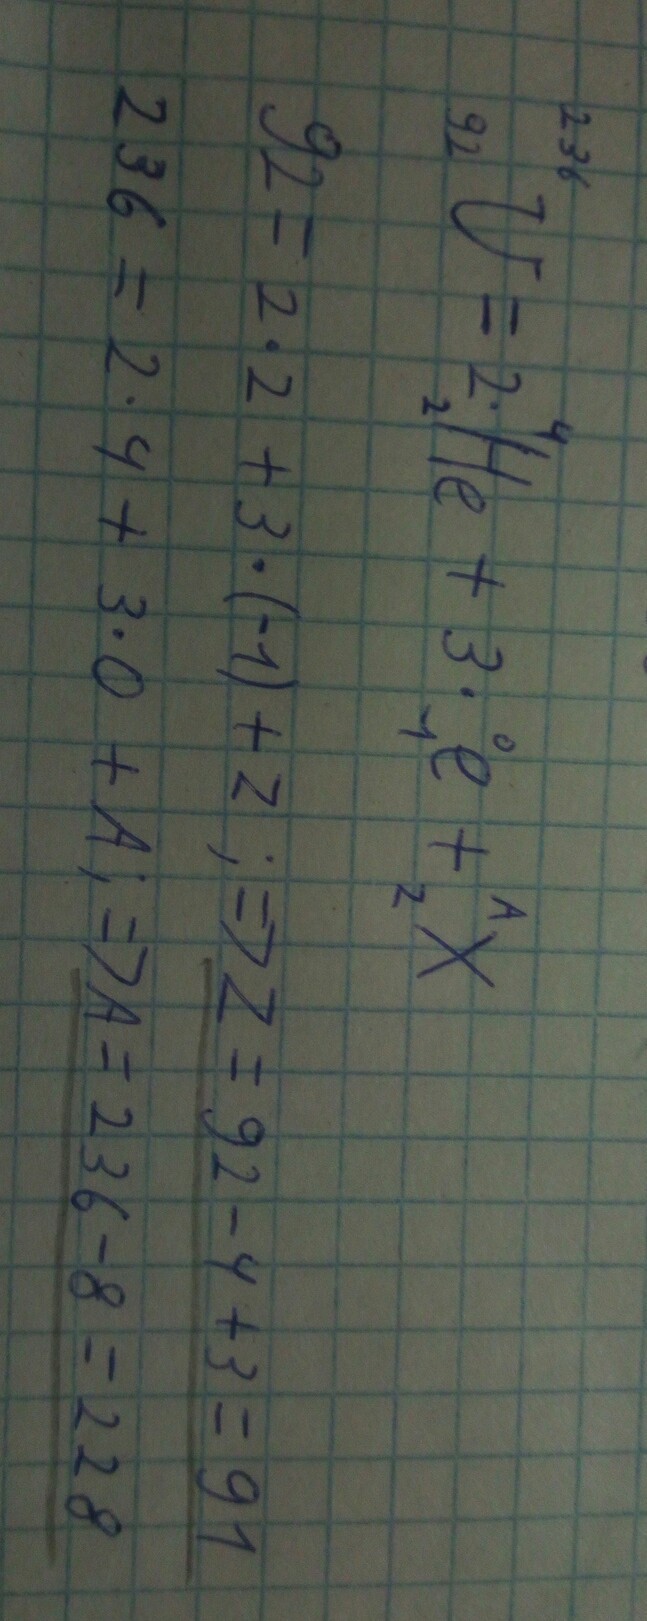 ²³⁶₉₂U = 2·⁴₂He + 3·⁰₋₁e + ᴬ₂X
92 = 2·2 + 3·(-1) + Z ; => Z = 92 - 4 + 3 = 91
236 = 2·4 + 3·0 + A ; => A = 236 - 8 = 228